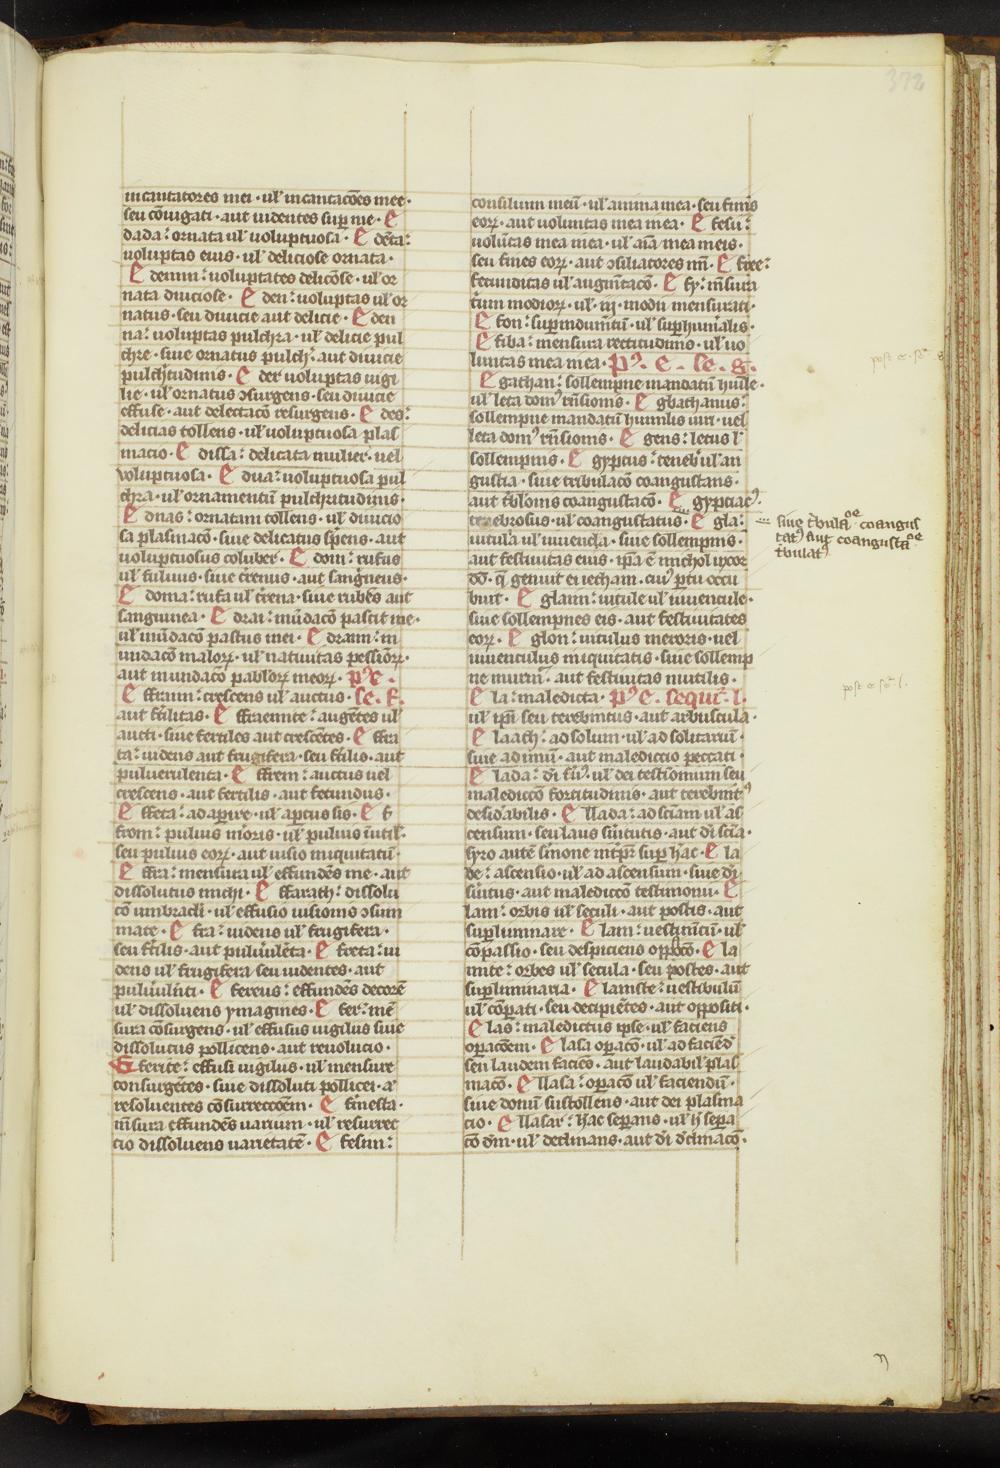 372
incantatores mei · ul' incantacões mee ·
seu cõiugati · aut uidentes sup me · E
dada : ornata ul' uoluptuosa · E deta :
uoluptas eius · ul' deliciose ornata ·
E demm : uoluptates delicose · ul' or
nata diuiciose · E den : uoluptas ul' or
natus · seu diuicie aut delicie · E den
na : uoluptas pulchra · ul' delicie pul
chre · siue ornatus pulch' : aut diuicie
pulch'tudinis · E der uoluptas uigi
lie · ul' ornatus ɔsurgens · seu diuicie
effuse · aut delectacõ resurgens · E des :
delicias tollens · ul' uoluptuosa plas
macio · E dissa : delicata mulier · uel
voluptuosa · E dua : uoluptuosa pul
chra · ul' ornamentũ pulchritudinis ·
E dnas : ornatam tollens · ul' diuicio
sa plasmacõ · siue delicatus spens · aut
uoluptuosus coluber · E dom : rufus
ul' fuluus · siue t'renus · aut sang'neus ·
E doma : rufa ul' t'rena · siue rubẽs aut
sanguinea · E drai : mũdacõ pascit me ·
ul' mũdacõ pastus mei · E drann : in
mundacõ malorꝝ · ul' natiuitas pessiorꝝ ·
aut mundacõ pabulorꝝ meorꝝ · p' e ·
E ffraim : crescens ul' auctus · se · f ·
aut f'tilitas · E ffraemite : augẽtes ul'
aucti · siue fertiles aut crescẽtes · E ffra
ta : uidens aut frugifera · seu f'tilis · aut
puluerulenta · E ffrem : auctus uel
crescens · aut fertilis · aut fecundus ·
E ffeta : adapire · ul' aptus sis · E f
from : puluis m'oris · ul' puluis inutil' ·
seu puluis eorꝝ · aut uisio iniquitatũ ·
E ffra : mensura ul' effundẽs me · aut
dissolutus michi · E ffarath : dissolu
cõ umbracli · ul' effusio uisionis ɔsum
mate · E fra : uidens ul' frugifera ·
seu f'tilis · aut puluulẽta · E freta : ui
dens ul' frugifera seu uidentes · aut
puluul'nti · E fereus : effundẽs decorẽ
ul' dissoluens ymagines · E fer : mẽ
sura cõsurgens · ul' effusus uigilus siue
dissolutus pollicens · aut reuolucio ·
E ferite : effusi uigilus · ul' mensure
consurgẽtes · siue dissoluti pollicei · a'
resoluentes cõsurreccoẽm · E f'nesta ·
m'sura effundẽs uarium · ul' resurrec
cio dissoluens uarietatẽ · E fesun :
consilium meũ · ul' anima mea · seu f'nnis
eorꝝ · aut uoluntas mea mea · E fesu :
uolũtas mea mea · ul' aĩa mea meis ·
seu f'ines eorꝝ · aut ɔsiliatores mĩ · E free :
fecunditas ul' augm̃tacõ · E fy : m'sura
trium modiorꝝ · ul' · iij · modii mensurati ·
E fon : supindumtũ · ul' suphum'alis ·
E fiba : mensura rectitudinis · ul' uo
luntas mea mea · P' · e · se · g ·
E gathan : sollempne mandatũ huile ·
ul' leta dom' ñsionis · E gbathanus :
sollempne mandatũ humilis uiri · uel
leta dom' ñsionis · E gens : letus l'
sollempnis · E gyptus : teneb' ul' an
gustia · siue tribulacõ coangustans ·
aut t'bl'onis coangustacõ · E gyptiac' ·
tenebrosus · ul' coangustatus · E gla :
uitula ul' iuuencla · siue sollempnis ·
aut festiuitas eius · ipa ẽ michol uxor
dd · q genuit ei iecham · cui' ptu occu
buit · E glann : uitule ul' iuuencule ·
siue sollempnes eis · aut festiuitates
eorꝝ · E glon : uitulus meroris · uel
iuuenculus iniquitatis · siue sollemp
ne murm' · aut festiuitas inutilis ·
E la : maledicta · P' e · sequr · l ·
ul' ipi seu terebintus · aut arbuscula ·
E laach : ad solum · ul' ad solitariũ ·
siue ad imũ · aut malediccio peccati ·
E lada : di t'u' · ul' dei testiomum seu
malediccõ fortitudinis · aut terebint'
desid'abilis · E llada : ad sciam ul' as
censum · seu laus s'uitutis · aut di scia ·
syro autẽ s'mone int'pr sup hac · E la
de : ascensio · ul' ad ascensum · siue di
s'uitus · aut malediccõ testimonii · E
lam : orbis ul' seculi · aut postis · aut
supluminare · E lam : uestim̃tũ · ul'
cõpassio · seu despiciens opp'coõ · E la
mite : orbes ul' secula · seu postes · aut
supluminaria · E lamite : uestibulũ
ul' cõpati · seu decipiẽtes · aut oppositi ·
E las : maledictus ipse · ul' faciens
opacoem · E lasa opacõ · ul' ad faciẽd'
seu laudem faciẽs · aut laudabil' plas
macõ · E llasa : opacõ ul' faciendũ ·
siue donũ sustollens · aut dei plasma
cio · E llasar : hac sepans · ul' ij sepa
cõ dm · ul' declinans · aut di d'clinacõ ·
siue t'bulacõe · coangus
tat' aut coangustacõe
t'bulat'
post e · se · g
post e · se · l ·
n